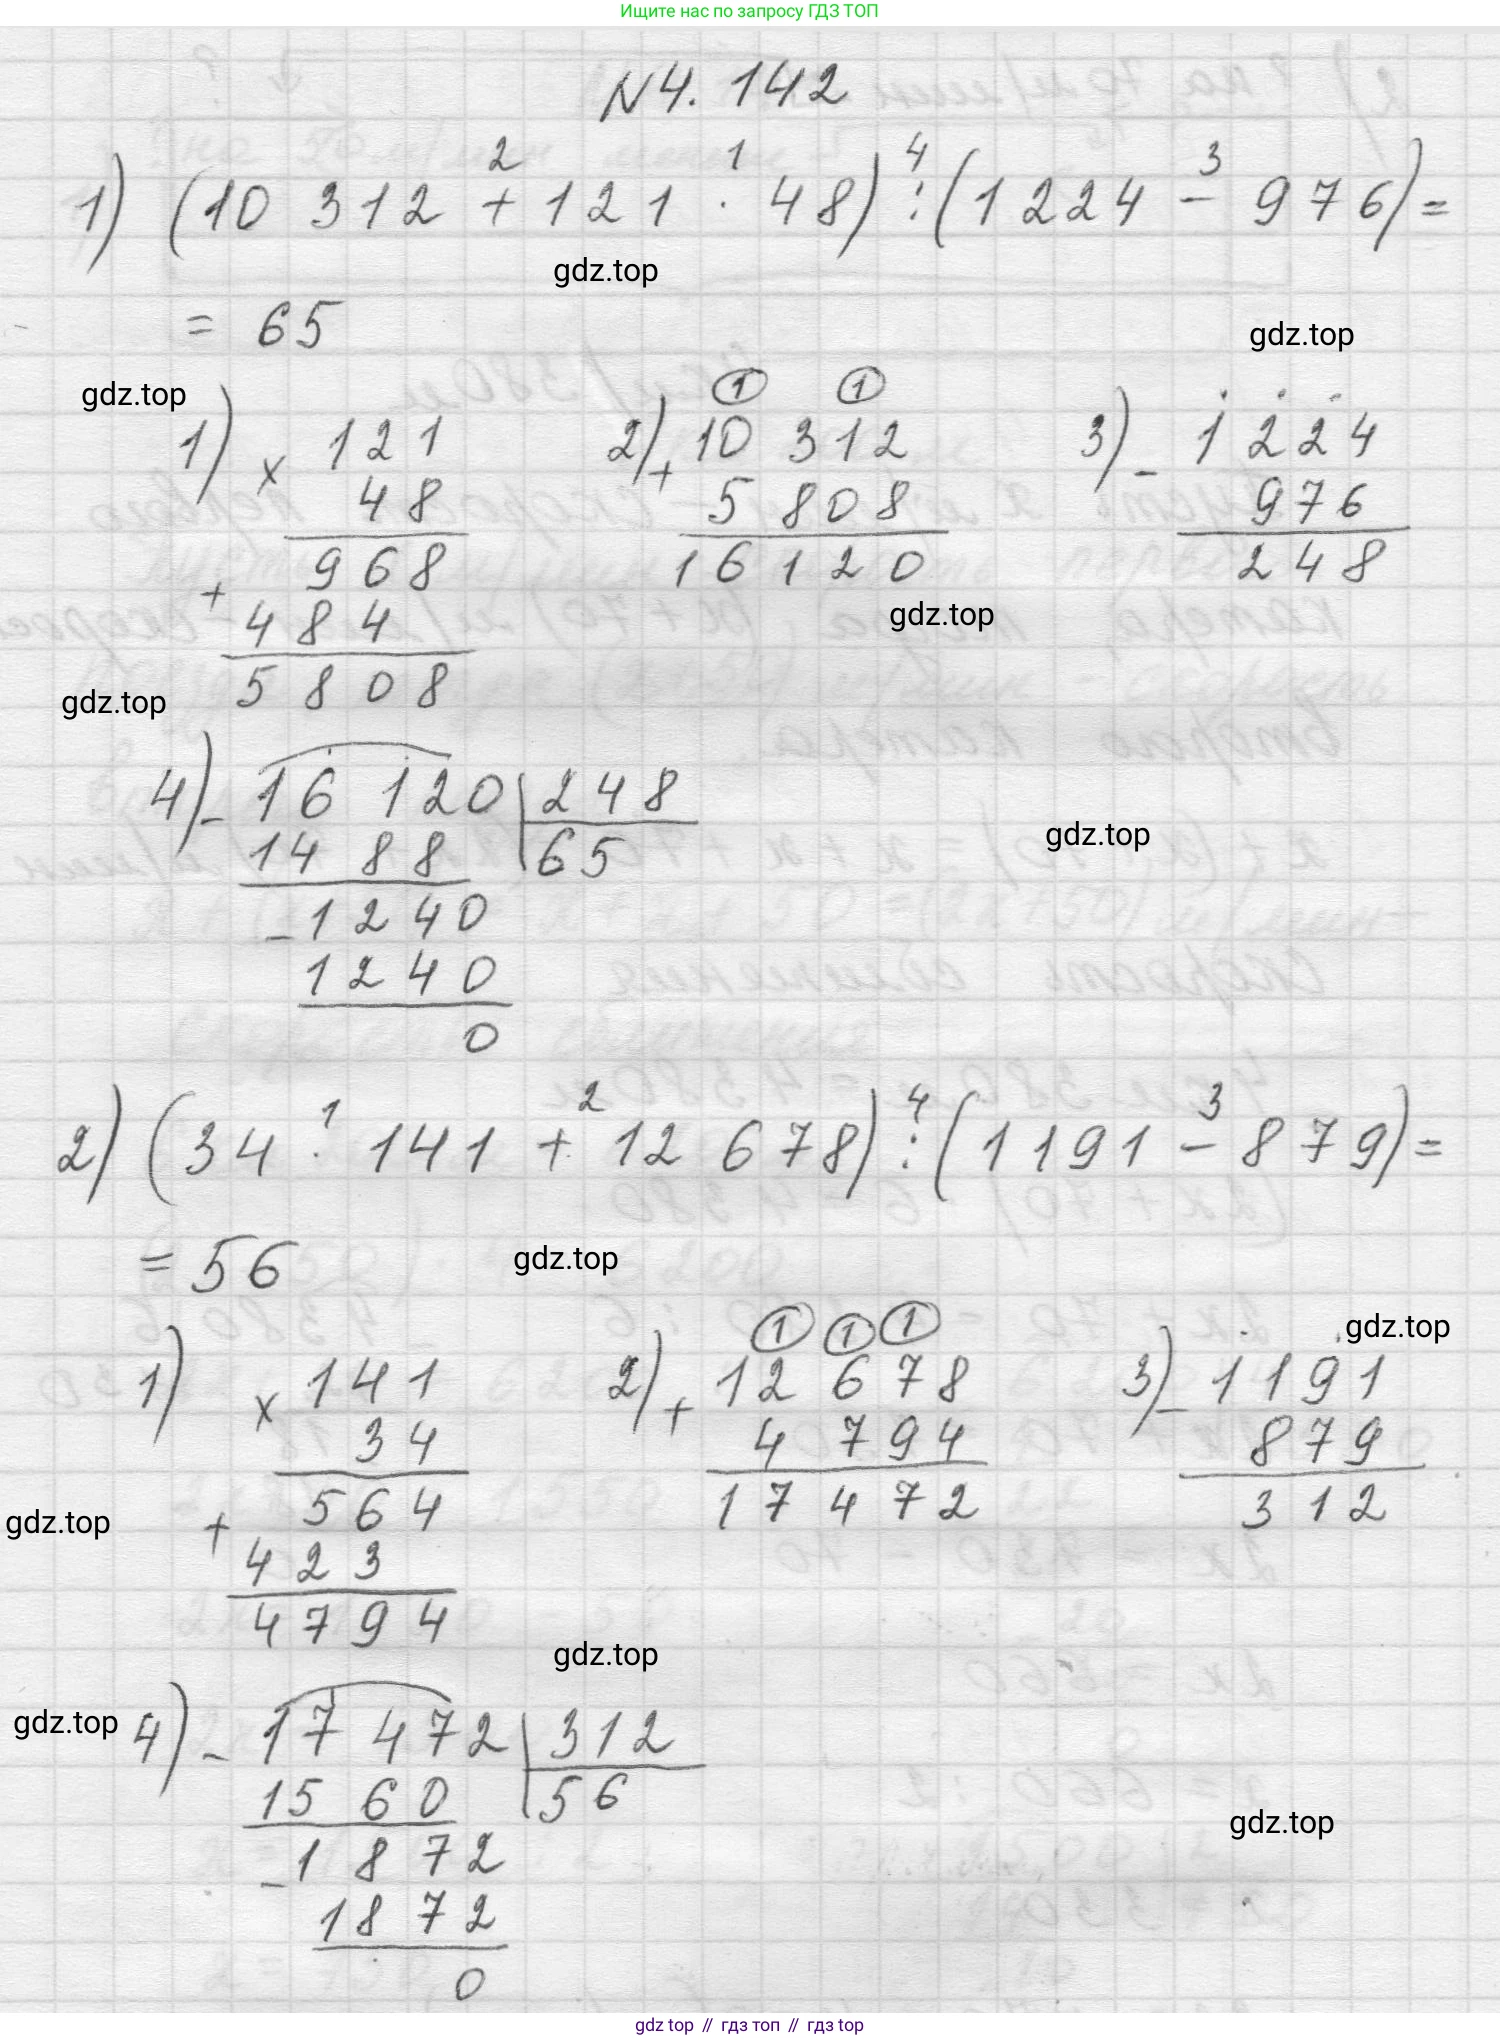 Ищите нас по запросу ГДЗ ТОП
N4. 142
2 1 4 3
1) (10 312 + 121 · 48) : (1224 − 976) =
gdz.top
= 65
gdz.top
gdz.top
1) × 121
48
968
+ 484
5808
2) + 10 312
1 1
5 808
16120
3) − 1224
976
248
gdz.top
gdz.top
4) − 16 120 | 248
14 88 | 65
− 1240
1240
0
gdz.top
1 2 4 3
2) (34 · 141 + 12 678) : (1191 − 879) =
= 56
gdz.top
gdz.top
1) × 141
34
564
+ 423
4794
1 1 1
2) + 12 678
4 794
17 472
3) − 1191
879
312
gdz.top
gdz.top
gdz.top
4) − 17 472 | 312
15 60 | 56
− 1872
1872
0
gdz.top
gdz top // гдз топ // гдз top